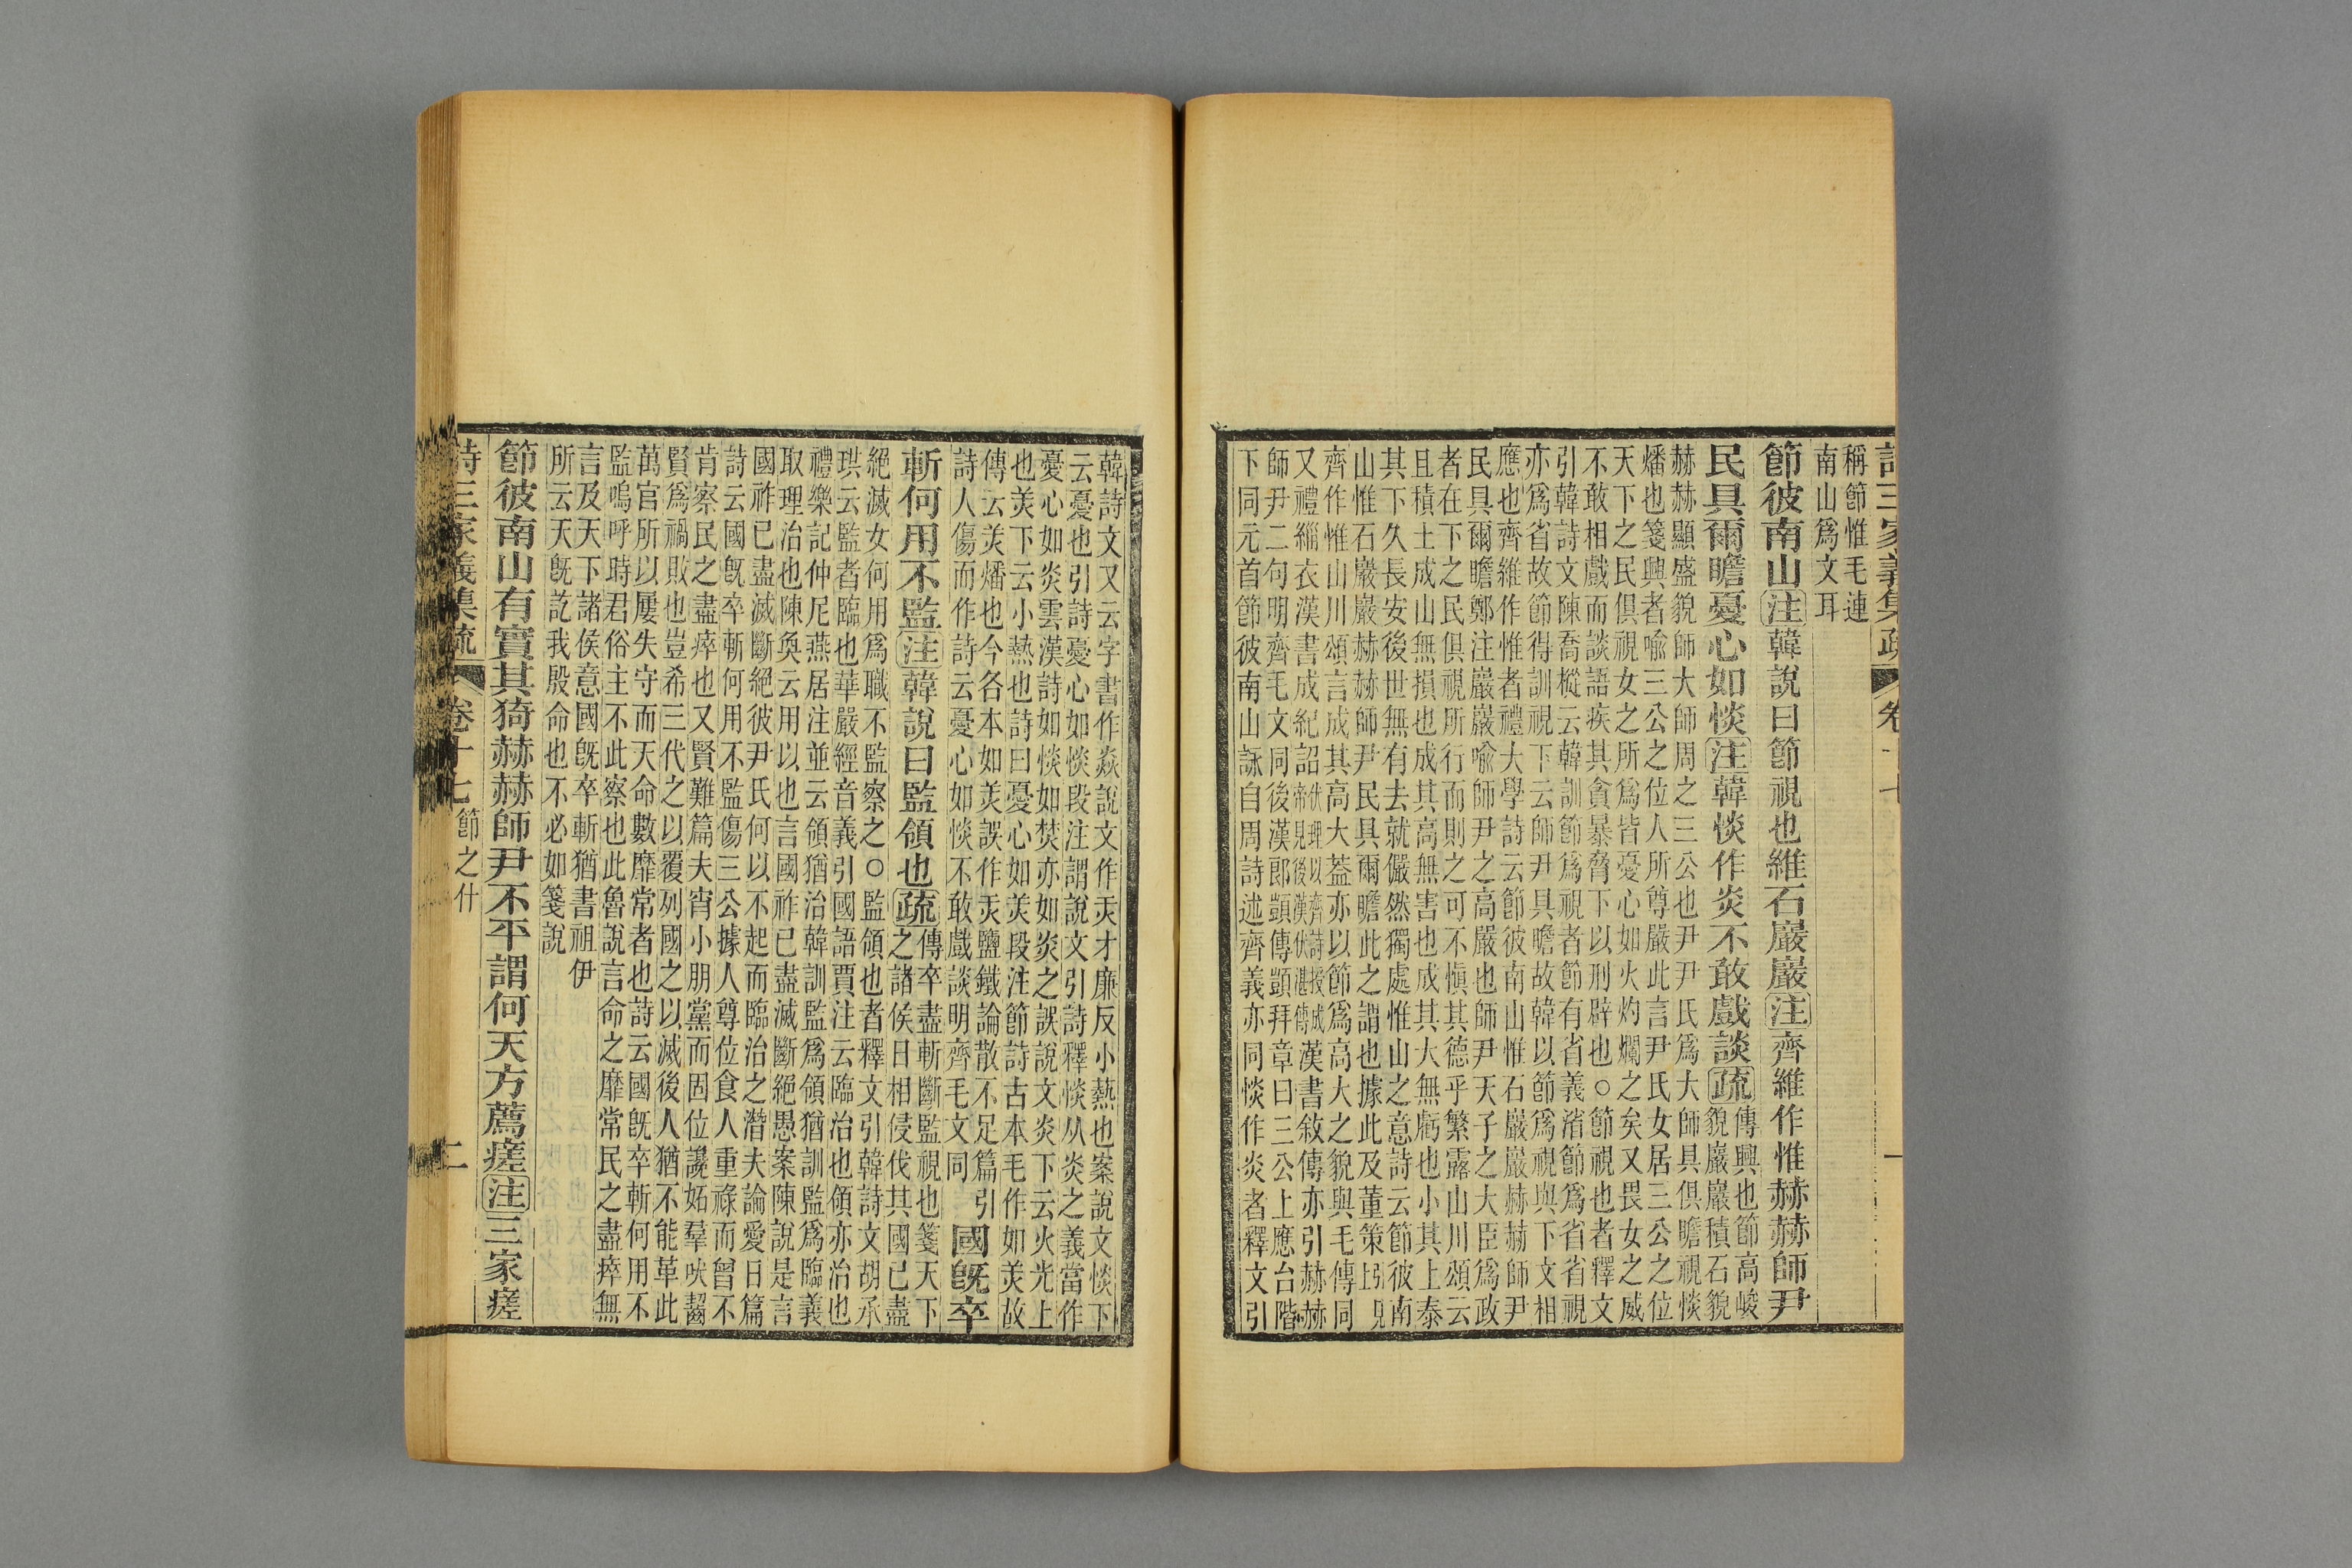 詩三家義集疏 卷十七
稱節惟毛連
南山爲文耳
節彼南山注韓說曰節視也維石巖巖注齊維作惟赫赫師尹
民具爾瞻憂心如惔注韓惔作炎不敢戲談疏
傳興也節高峻
貌巖巖積石貌
赫赫顯盛貌師大師周之三公也尹尹氏爲大師具俱瞻視惔
燔也箋興者喻三公之位人所尊嚴此言尹氏女居三公之位
天下之民俱視女之所爲皆憂心如火灼爛之矣又畏女之威
不敢相戲而談語疾其貪暴脅下以刑辟也○節視也者釋文
引韓詩文陳喬樅云韓訓節爲視者節有省義渻節爲省省視
亦爲省故節得訓視下云師尹具瞻故韓以節爲視與下文相
應也齊維作惟者禮大學詩云節彼南山惟石巖巖赫赫師尹
民具爾瞻鄭注巖巖喻師尹之高嚴也師尹天子之大臣爲政
者在下之民俱視所行而則之可不愼其德乎繁露山川頌云
且積土成山無損也成其高無害也成其大無虧也小其上泰
其下久長安後世無有去就儼然獨處惟山之意詩云節彼南
山惟石巖巖赫赫師尹民具爾瞻此之謂也據此及董策引見上
齊作惟山川頌言成其高大蓋亦以節爲高大之貌與毛傳同
又禮緇衣漢書成紀詔伏理以齊詩授成帝見後漢伏湛傳漢書敘傳亦引赫赫
師尹二句明齊毛文同後漢郎顗傳顗拜章曰三公上應台階
下同元首節彼南山詠自周詩述齊義亦同惔作炎者釋文引
韓詩文又云字書作焱說文作𤆎才廉反小熱也案說文惔下
云憂也引詩憂心如惔段注謂說文引詩釋惔从炎之義當作
憂心如炎雲漢詩如惔如焚亦如炎之誤說文炎下云火光上
也𤆎下云小熱也詩曰憂心如𤆎段注節詩古本毛作如𤆎故
傳云𤆎燔也今各本如𤆎誤作𤆎鹽鐵論散不足篇引
詩人傷而作詩云憂心如惔不敢戲談明齊毛文同
國旣卒
斬何用不監注韓說曰監領也疏
傳卒盡斬斷監視也箋天下
之諸侯日相侵伐其國已盡
絕滅女何用爲職不監察之○監領也者釋文引韓詩文胡承
珙云監者臨也華嚴經音義引國語賈注云臨治也領亦治也
禮樂記仲尼燕居注並云領猶治韓訓監爲領猶訓監爲臨義
取理治也陳奐云用以也言國祚已盡滅斷絕愚案陳說是言
國祚已盡滅斷絕彼尹氏何以不起而臨治之潛夫論愛日篇
詩云國旣卒斬何用不監傷三公據人尊位食人重祿而曾不
肯察民之盡瘁也又賢難篇夫宵小朋黨而固位讒妬羣吠齧
賢爲禍敗也豈希三代之以覆列國之以滅後人猶不能革此
萬官所以屢失守而天命數靡常者也詩云國旣卒斬何用不
監嗚呼時君俗主不此察也此魯說言命之靡常民之盡瘁無
言及天下諸侯意國旣卒斬猶書祖伊
所云天旣訖我殷命也不必如箋說
節彼南山有實其猗赫赫師尹不平謂何天方薦瘥注三家瘥
詩三家義集疏 卷十七 節之什 二